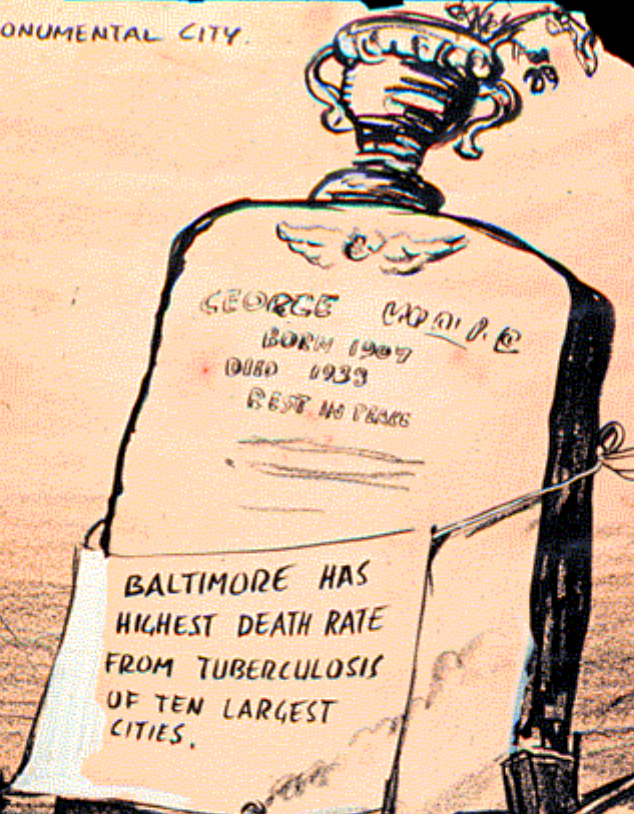 ONUMENTAL CITY.
GEORGE
BORN 1907
DIED 1933
REST IN PEACE
BALTIMORE HAS
HIGHEST DEATH RATE
FROM TUBERCULOSIS
OF TEN LARGEST
CITIES.